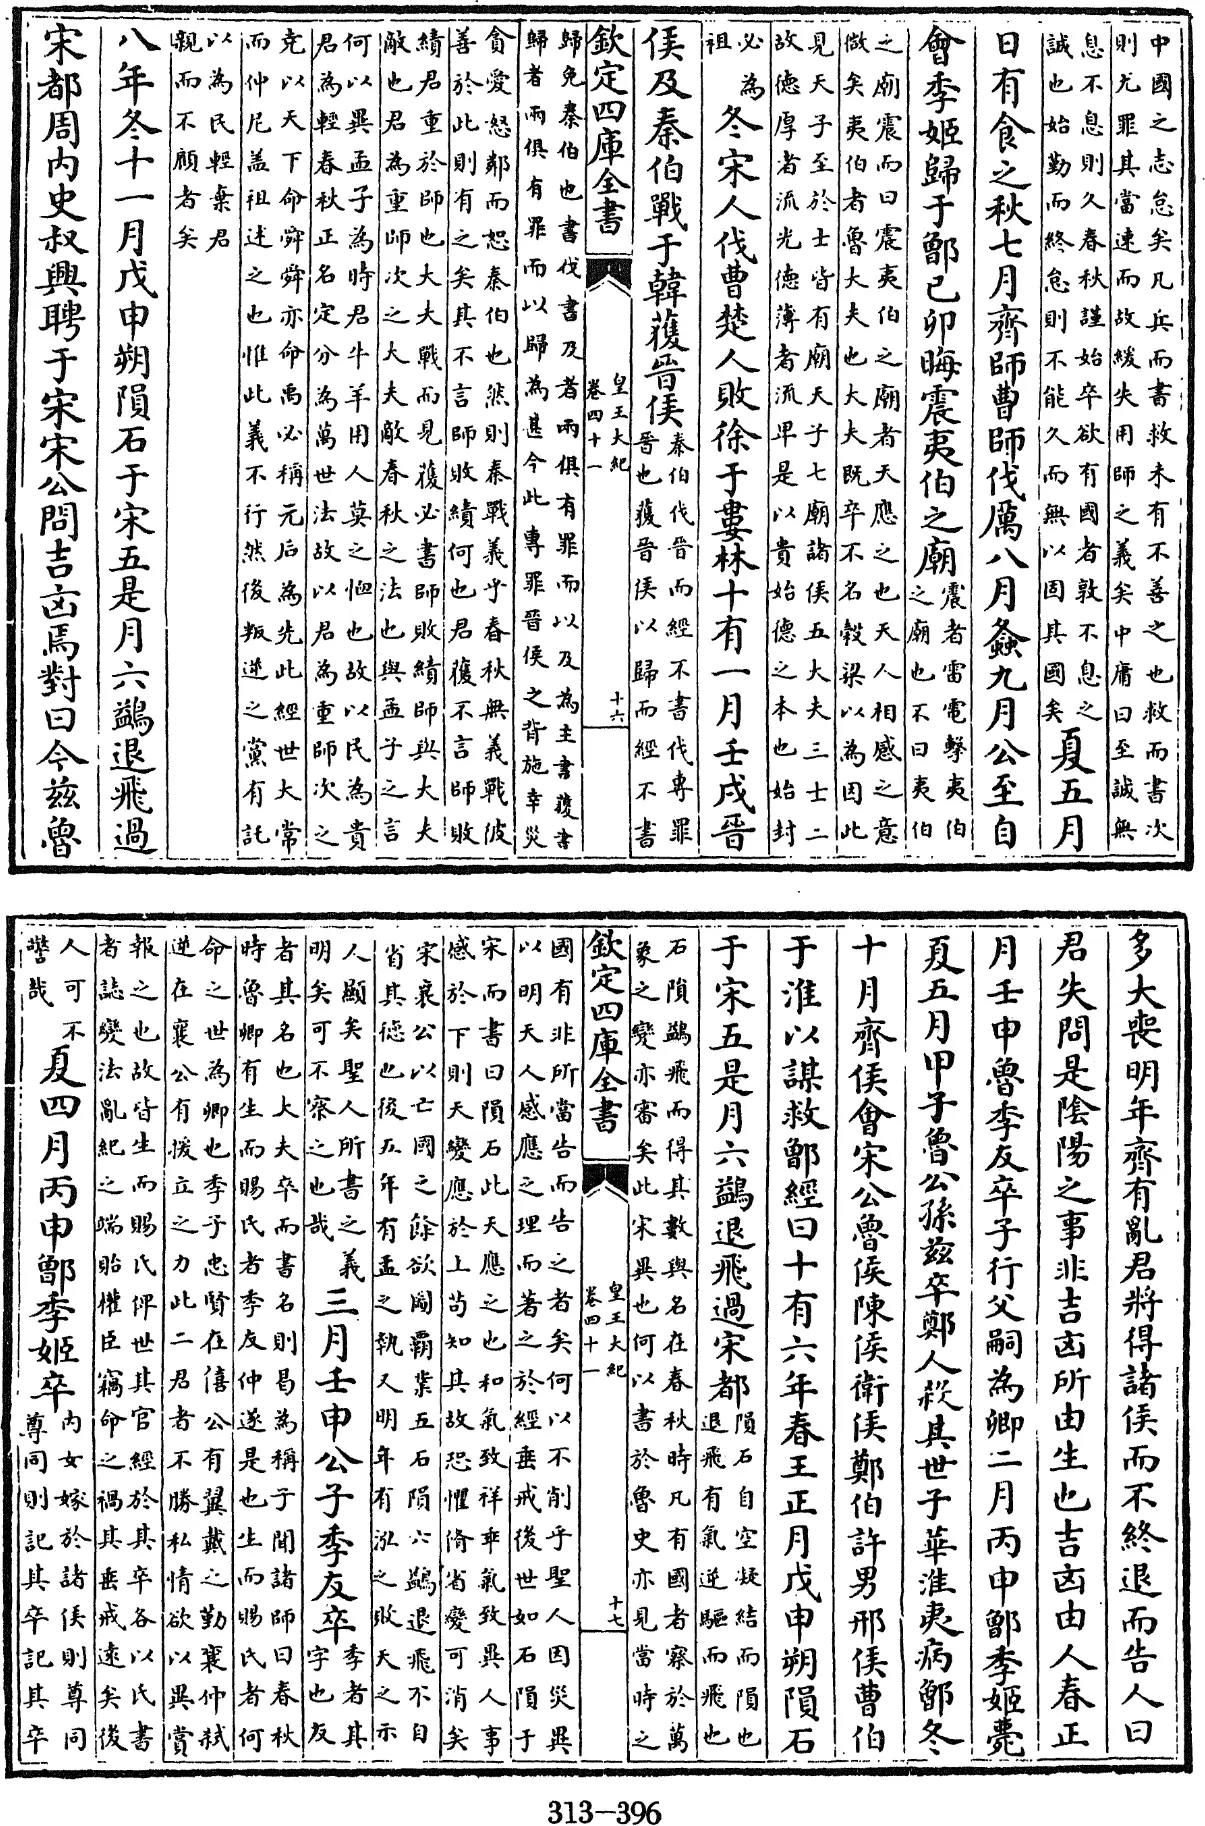 中國之志怠矣凡兵而書救未有不善之也救而書次
則尤罪其當速而故緩失用師之義矣中庸曰至誠無
息不息則久春秋謹始卒欲有國者敦不息之
誠也始勤而終怠則不能久而無以固其國矣
夏五月
日有食之秋七月齊師曹師伐厲八月螽九月公至自
會季姬歸于鄫己卯晦震夷伯之廟
震者雷電擊夷伯
之廟也不曰夷伯
之廟震而曰震夷伯之廟者天應之也天人相感之意
微矣夷伯者魯大夫也大夫既卒不名穀梁以為因此
見天子至於士皆有廟天子七廟諸侯五大夫三士二
故德厚者流光德薄者流卑是以貴始德之本也始封
必為
祖
冬宋人伐曹楚人敗徐于婁林十有一月壬戌晉
侯及秦伯戰于韓獲晉侯
秦伯伐晉而經不書伐專罪
晉也獲晉侯以歸而經不書
欽定四庫全書
皇王大紀
卷四十一
十六
歸免秦伯也書伐書及者兩俱有罪而以及為主書獲書
歸者兩俱有罪而以歸為甚今此專罪晉侯之背施幸災
貪愛怒鄰而恕秦伯也然則秦戰義乎春秋無義戰彼
善於此則有之矣其不言師敗績何也君獲不言師敗
績君重於師也大夫戰而見獲必書師敗績師與大夫
敵也君為重師次之大夫敵春秋之法也與孟子之言
何以異孟子為時君牛羊用人莫之恤也故以民為貴
君為輕春秋正名定分為萬世法故以君為重師次之
克以天下命舜舜亦命禹必稱元后為先此經世大常
而仲尼蓋祖述之也惟此義不行然後叛逆之黨有託
以為民輕棄君
親而不顧者矣
八年冬十一月戊申朔隕石于宋五是月六鷁退飛過
宋都周内史叔興聘于宋宋公問吉凶焉對曰今茲魯
多大喪明年齊有亂君將得諸侯而不終退而告人曰
君失問是陰陽之事非吉凶所由生也吉凶由人春正
月壬申魯季友卒子行父嗣為卿二月丙申鄫季姬薨
夏五月甲子魯公孫茲卒鄭人殺其世子華淮夷病鄫冬
十月齊侯會宋公魯侯陳侯衛侯鄭伯許男邢侯曹伯
于淮以謀救鄫經曰十有六年春王正月戊申朔隕石
于宋五是月六鷁退飛過宋都
隕石自空凝結而隕也
退飛有氣逆驅而飛也
石隕鷁飛而得其數與名在春秋時凡有國者察於萬
象之變亦審矣此宋異也何以書於魯史亦見當時之
欽定四庫全書
皇王大紀
卷四十一
十七
國有非所當告而告之者矣何以不削乎聖人因災異
以明天人感應之理而著之於經垂戒後世如石隕于
宋而書曰隕石此天應之也和氣致祥乖氣致異人事
感於下則天變應於上苟知其故恐懼脩省變可消矣
宋襄公以亡國之餘欲圖霸業五石隕六鷁退飛不自
省其德也後五年有盂之執又明年有泓之敗天之示
人顯矣聖人所書之義
明矣可不察之也哉
三月壬申公子季友卒
季者其
字也友
者其名也大夫卒而書名則曷為稱子聞諸師曰春秋
時魯卿有生而賜氏者季友仲遂是也生而賜氏者何
命之世為卿也季子忠賢在僖公有翼戴之勤襄仲弒
逆在襄公有援立之力此二君者不勝私情欲以異賞
報之也故皆生而賜氏俾世其官經於其卒各以氏書
者誌變法亂紀之端貽權臣竊命之禍其垂戒遠矣後
人可不
鑒哉
夏四月丙申鄫季姬卒
内女嫁於諸侯則尊同
尊同則記其卒記其卒
313-396